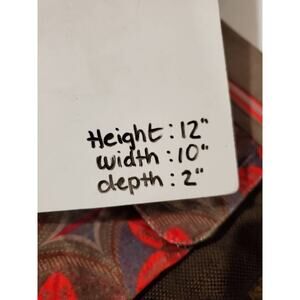 Height: 12"
width: 10"
depth: 2"